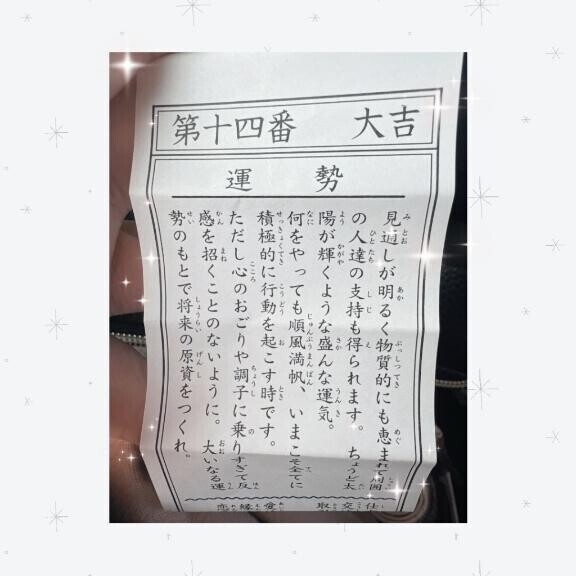 第十四番 大吉
運勢
見通しが明るく物質的にも恵まれて周囲
の人達の支持も得られます。ちょうど太
陽が輝くような盛んな運気。
何をやっても順風満帆、いまこそ全てに
積極的に行動を起こす時です。
ただし心のおごりや調子に乗りすぎて反
感を招くことのないように。大いなる運
勢のもとで将来の原資をつくれ。